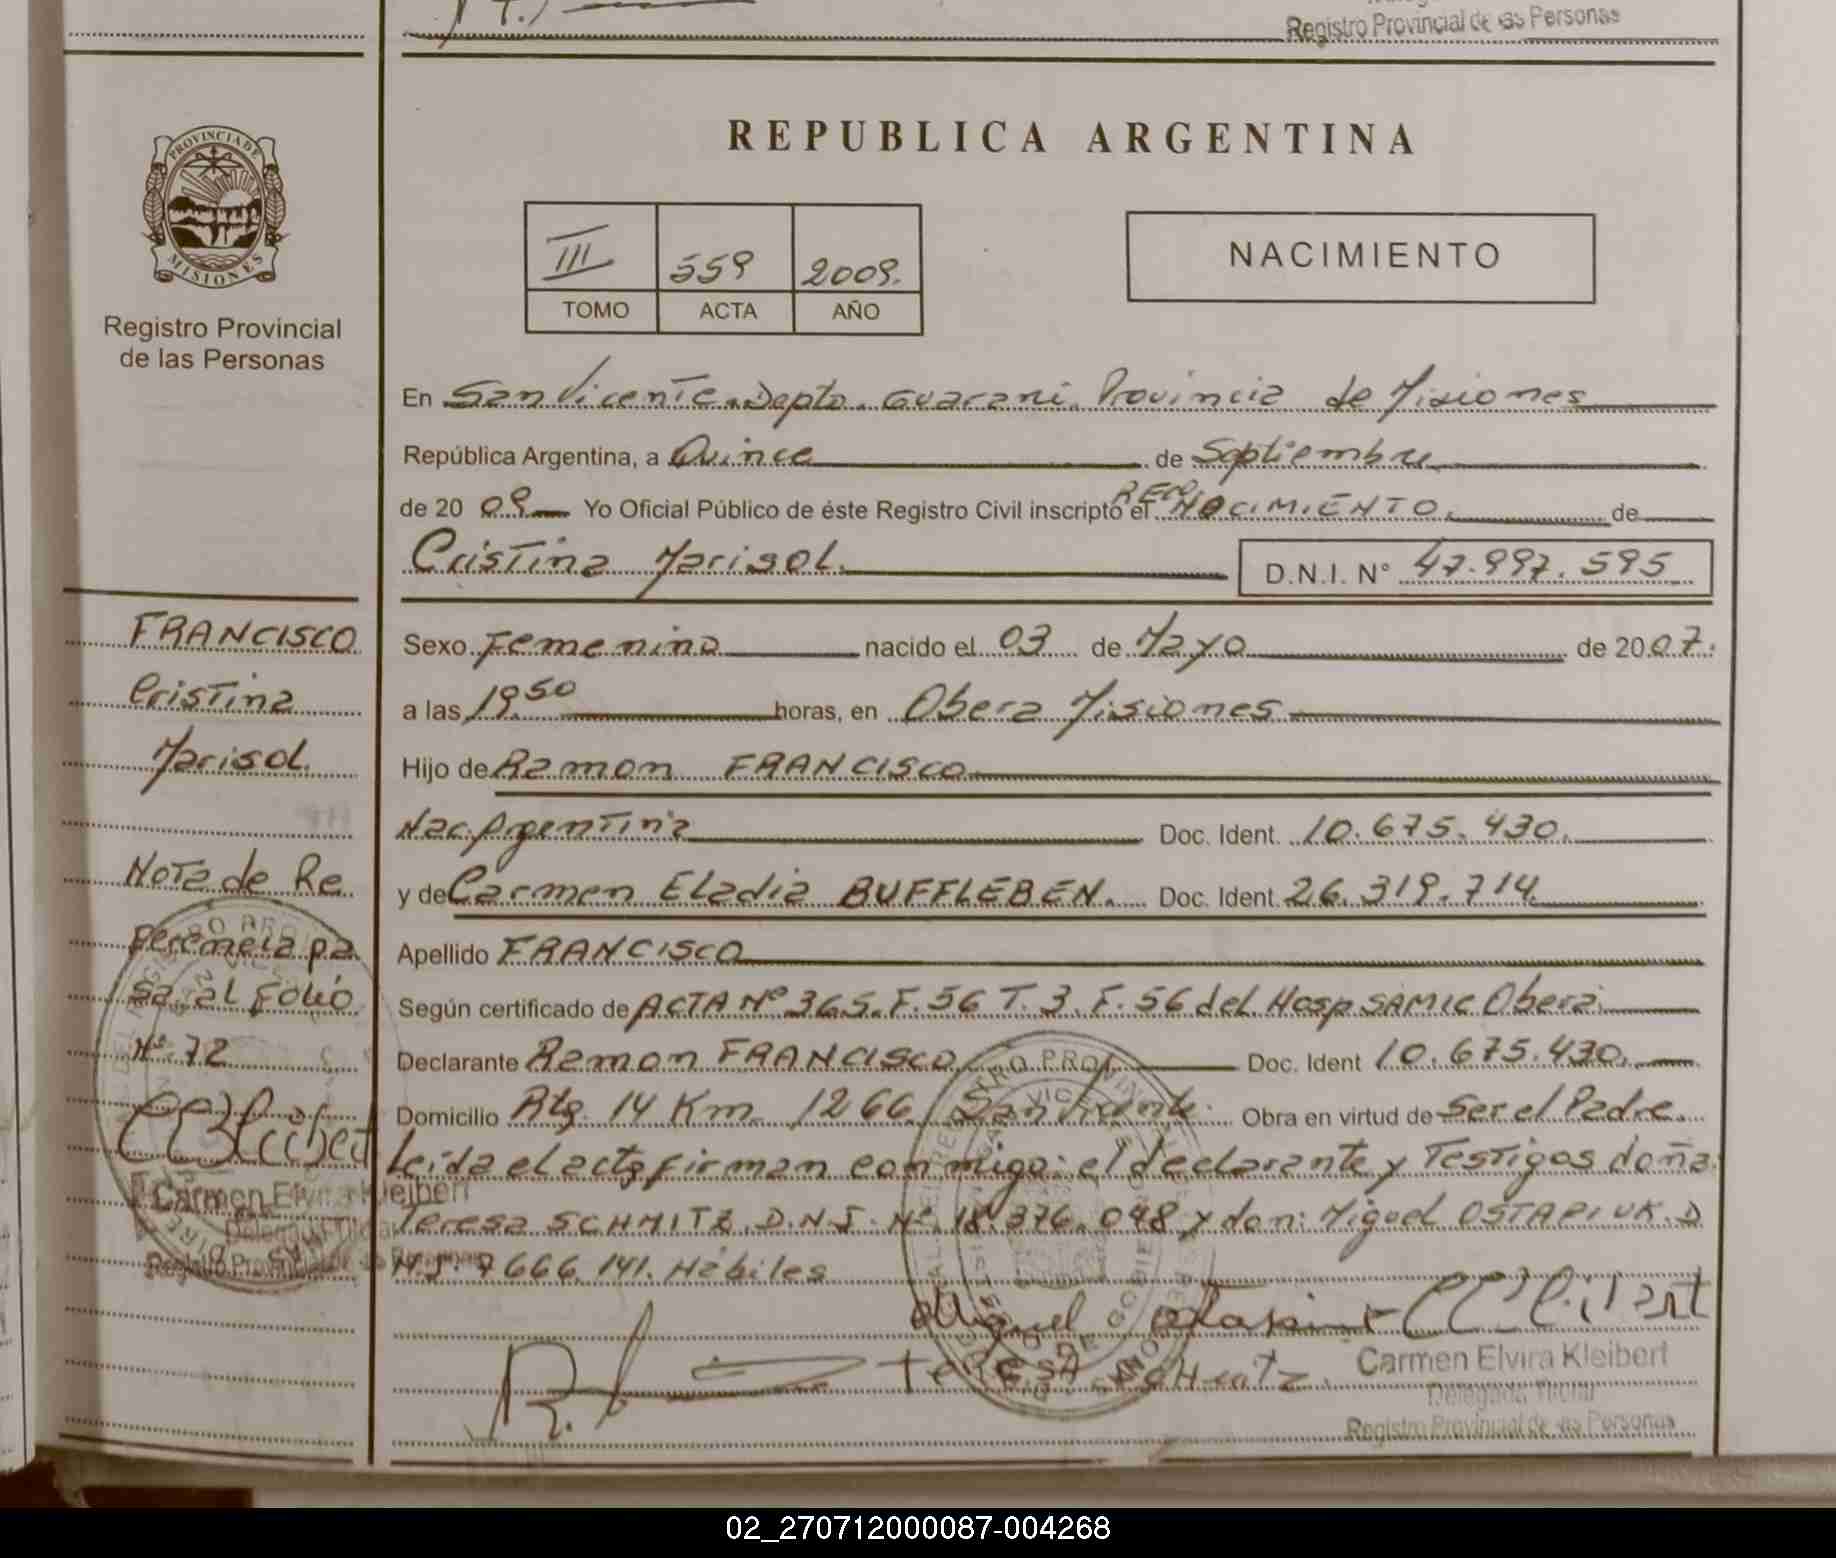 Registro Provincial de las Personas
PROVINCIA DE
MISIONES
Registro Provincial
de las Personas
REPUBLICA ARGENTINA
III 559 2009.
TOMO ACTA AÑO
NACIMIENTO
En San Vicente. Depto. Guarani. Provincia de Misiones
República Argentina, a Quince de Septiembre
de 20 09 Yo Oficial Público de éste Registro Civil inscripto el RECONOCIMIENTO. de
Cristina Marisol. D.N.I. N° 47.997.595
FRANCISCO
Cristina
Marisol.
Nota de Re
ferencia pa
sa al Folio
N° 72
Carmen Elvira Kleibert
Delegada Titular
Registro Provincial de las Personas
Sexo Femenino nacido el 03 de Mayo de 2007.
a las 19.50 horas, en Obera Misiones
Hijo de Ramon FRANCISCO
Nac. Argentina Doc. Ident. 10.675.430.
y de Carmen Eladia BUFFLEBEN. Doc. Ident. 26.319.714
Apellido FRANCISCO
Según certificado de ACTA N° 365. F. 56 T. 3. F. 56 del Hosp SAMIC Obera.
Declarante Ramon FRANCISCO Doc. Ident 10.675.430.
Domicilio Rta. 14 Km. 1266 San Vicente. Obra en virtud de Ser el Padre.
Leida el acta firman conmigo: el declarante y Testigos doña:
Teresa SCHMITZ. D.N.I. N° 18.376.048 y don: Miguel OSTAPIUK. D
N.I. 7666.141. Hábiles
Miguel
TERESA
Carmen Elvira Kleibert
Delegada Titular
Registro Provincial de las Personas
02_270712000087-004268